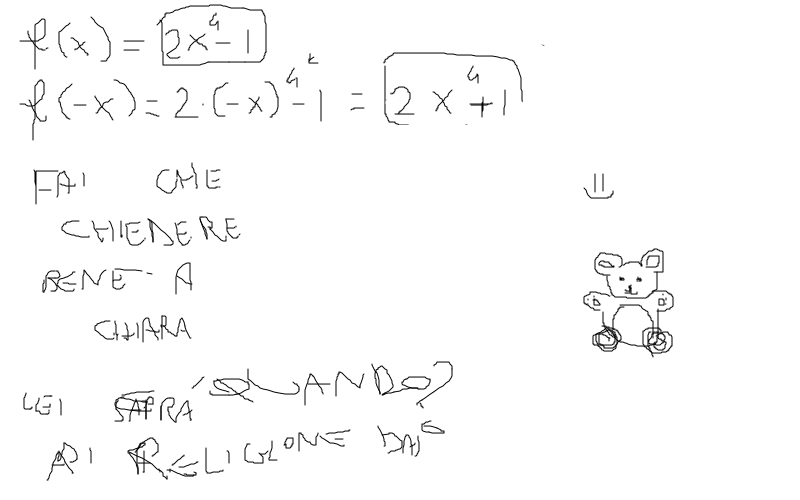 f(x) = 2x⁴-1
f(-x) = 2·(-x)⁴-1 = 2x⁴+1
FAI CHE
CHIEDERE
BENE A
CHIARA
LEI SAPRA' QUANDO?
A RELIGIONE DAI